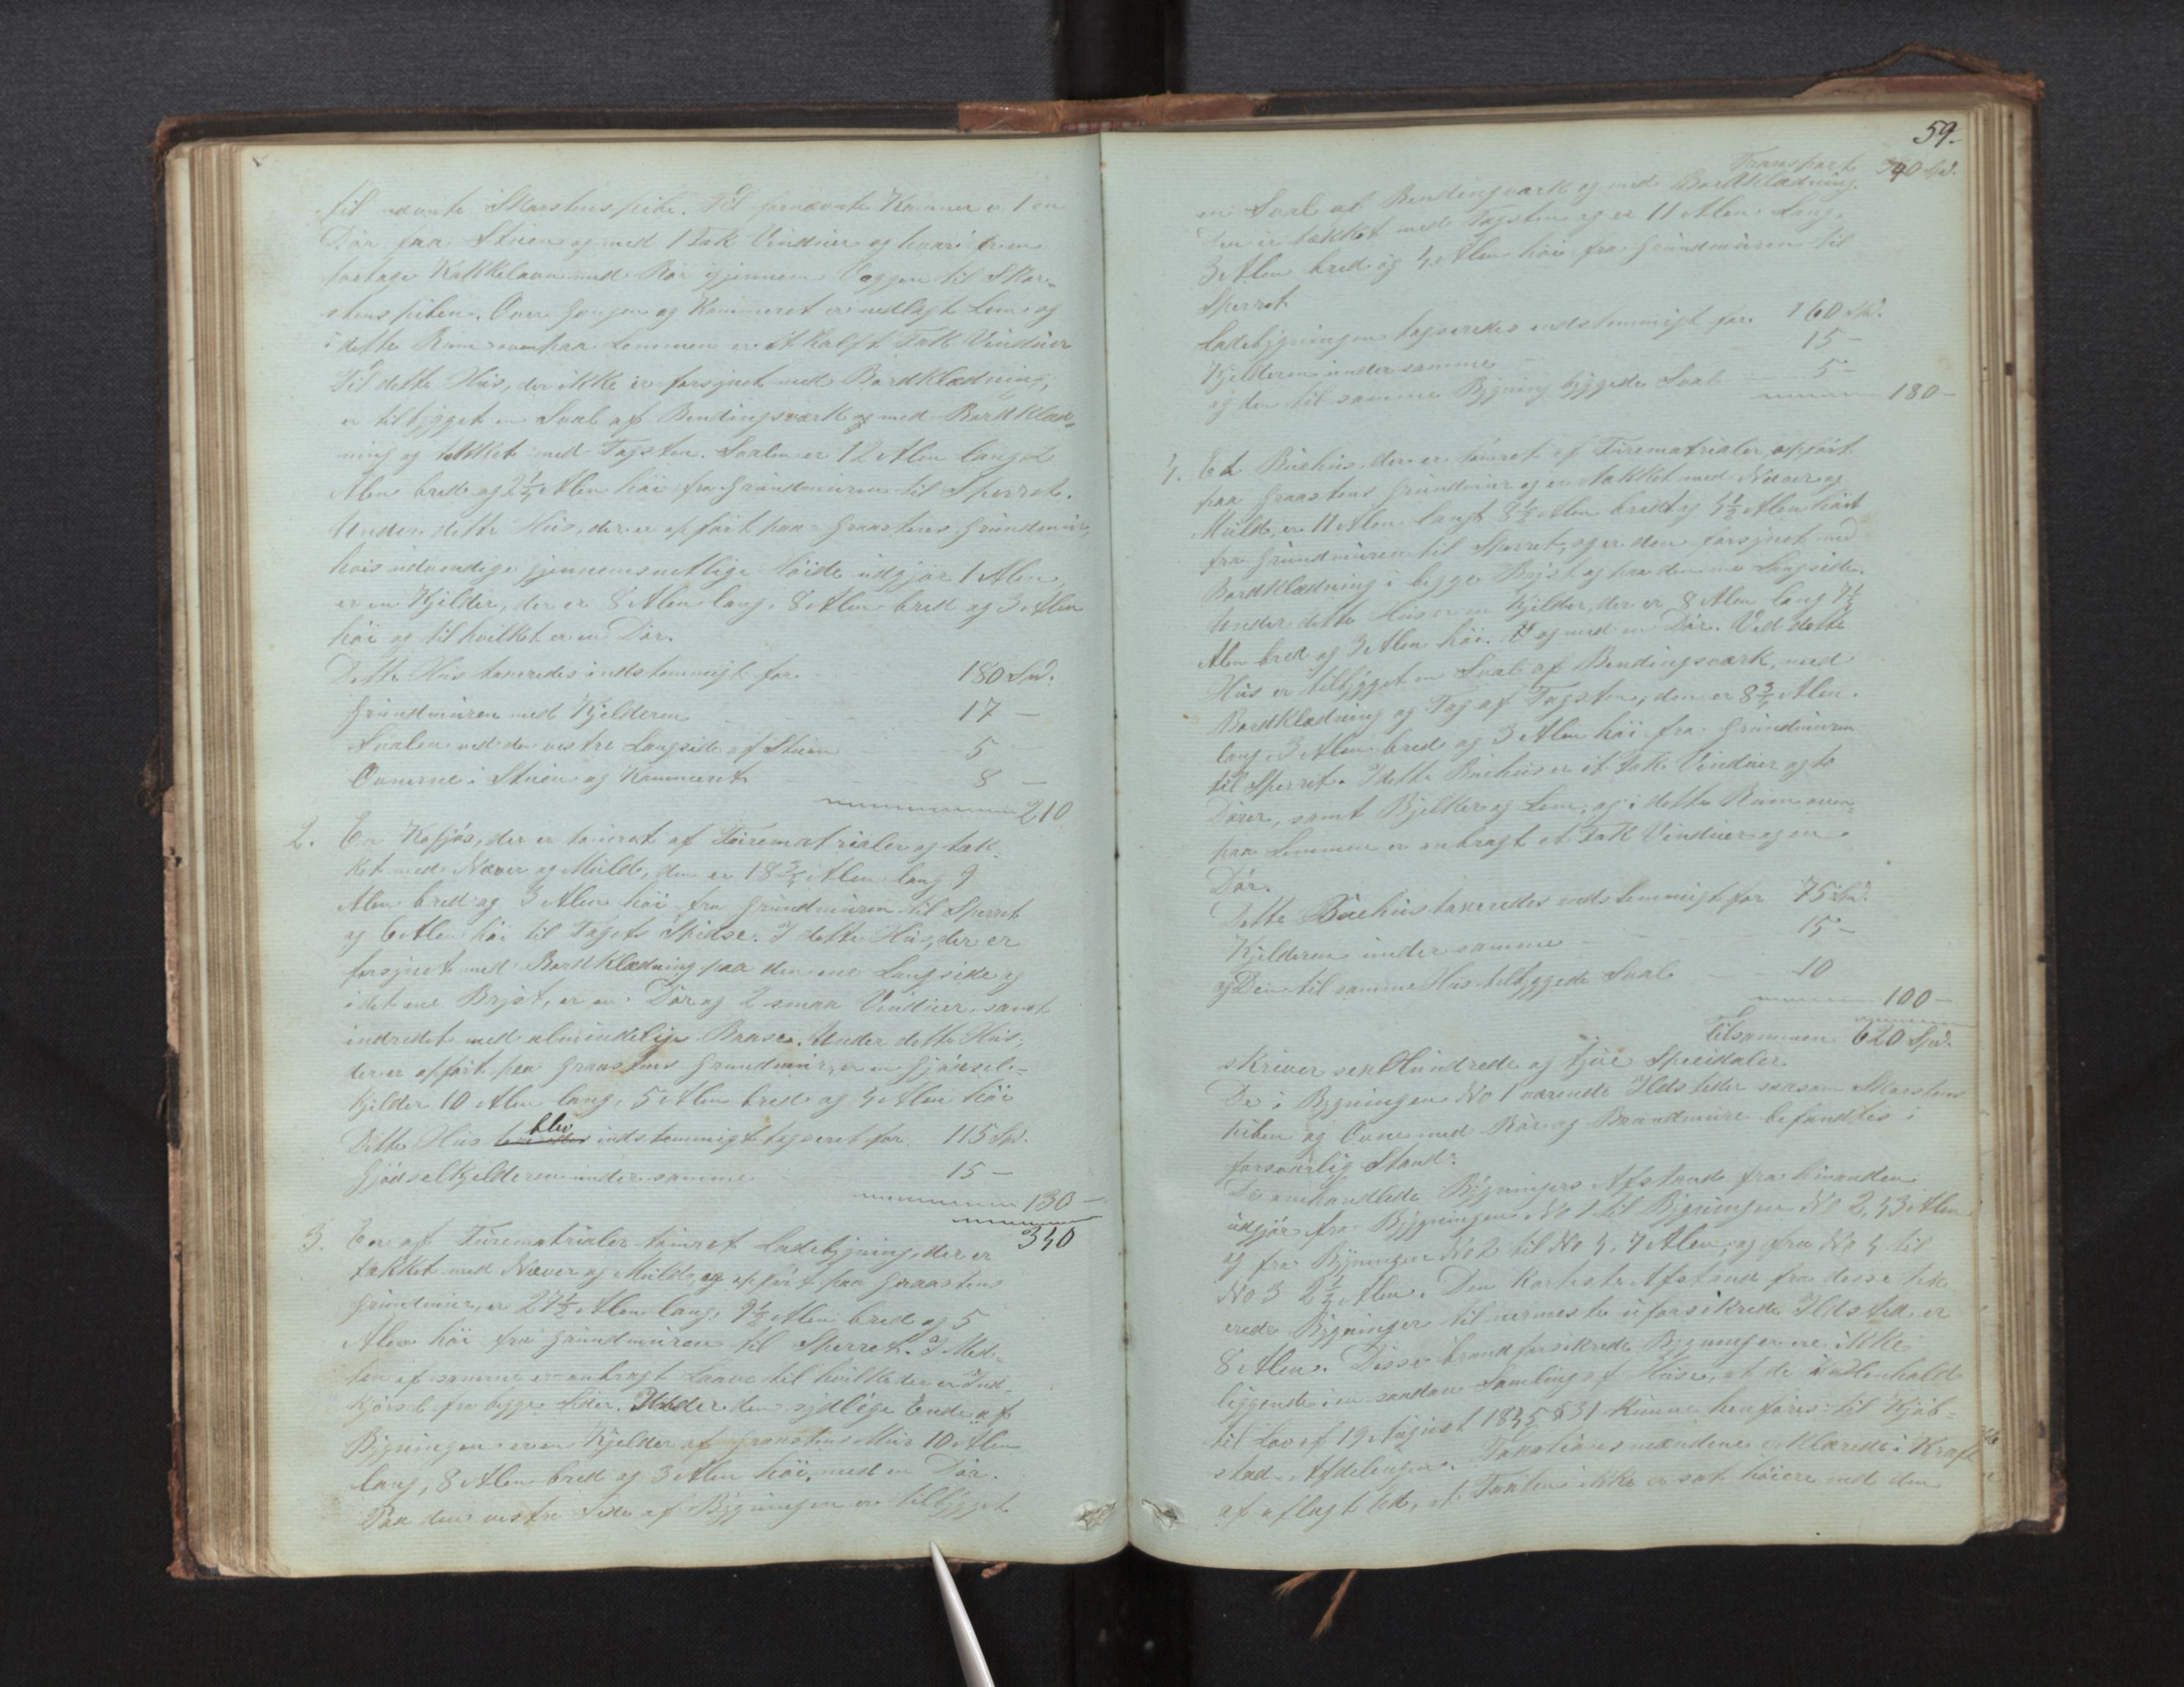 til nævnte Skorstenspibe. Til førnævnte Kammer er 1 en
Dør fra Stuen og med 1 Fak Vinduer og hvori er en
Kakkelovn med Rør igjennem Væggen til Skor-
stenspiben. Over Gangen og Kammeret er nedlagt Lem og
i dette Rum ovenpaa Lemmen er et halft Fak Vinduer
Til dette Hus, der ikke er forsynet med Bordklædning,
er tilbygget en Sval af Bendingsværk og med Bordklæd-
ning og tækket med Tagsten. Svalen er 12 Alen lang 2
Alen bred og 2 1/4 Alen høi fra Grundmuren til Sperret.
Under dette Hus, der er opført paa Graastens Grundmur,
hvis udvendige gjennemsnitlige Høide udgjør 1 Alen,
er en Kjelder, der er 8 Alen lang, 8 Alen bred og 3 Alen
høi og til hvilket er en Dør.
Dette Hus taxeredes indstemmigt for 180 Spd.
Grundmuren med Kjelderen 17 —
Svalen ved den vestre Langside af Stuen 5 —
Ovnerne i Stuen og Kammeret 8 —
210
2. En Kofjøs, der er tømret af Furematrialer og tæk-
ket med Næver og Muld, den er 18 3/4 Alen lang 9
Alen bred og 3 Alen høi fra Grundmuren til Sperret
og 6 Alen høi til Tagets Spidse. I dette Hus, der er
forsynet med Bordklædning paa den ene Langside og
i det ene Bryst, er en Dør og 2 smaa Vinduer, samt
indredet med almindelige Baase. Under dette Hus,
der er opført paa Graastens Grundmur, er en Gjødsel-
kjelder 10 Alen lang, 5 Alen bred og 4 Alen høi
Dette Hus blev indstemmigt taxeret for 115 Spd.
Gjødselkjelderen under samme 15 —
130 —
340
3. En af Furematrialer tømret Ladebygning, der er
tækket med Næver og Muld, og opført paa Graastens
Grundmur, er 27 1/2 Alen lang, 9 1/2 Alen bred og 5
Alen høi fra Grundmuren til Sperret. I Mid-
ten af samme er anbragt Laave til hvilke der er Ind-
kjørsel fra begge Sider. Under den sydlige Ende af
Bygningen er en Kjelder af Graastens Mur 10 Alen
lang, 8 Alen bred og 3 Alen høi, med en Dør.
Paa den vestre Side af Bygningen er tilbygget
59.
Transport 340 Spd.
en Sval af Bendingværk og med Bordklædning.
Den er tækket med Tagsten og er 11 Alen lang,
3 Alen bred og 4 Alen høi fra Grundmuren til
Sperret
Ladebygningen taxeredes indstemmigt for 160 Spd.
Kjelderen under samme 15 —
og den til samme Bygning byggede Sval 5 —
180 —
4. Et Buehus, der er tømret af Furematrialer opført
paa Graastens Grundmur og er tækket med Næver og
Muld, er 11 Alen langt 8 1/2 Alen bredt og 4 1/2 Alen høit
fra Grundmuren til Sperret, og er den forsynet med
Bordklædning i begge Bryst og paa den ene Langside.
Under dette Hus er en Kjelder, der er 8 Alen lang 7 1/2
Alen bred og 3 Alen høi. og med en Dør. Ved dette
Hus er tilbygget en Sval af Bendingsværk, med
Bordklædning og Tag af Tagsten, den er 8 3/4 Alen
lang, 3 Alen bred og 3 Alen høi fra Grundmuren
til Sperret. I dette Buehus er et Fak Vinduer og to
Dører, samt Bjelker og Lem, og i dette Rum oven-
paa Lemmen er anbragt et Fak Vinduer og en
Dør.
Dette Buehus taxeredes indstemmigt for 75 Spd.
Kjelderen under samme 15 —
og Den til samme Hus tilbyggede Sval 10
100 —
Tilsammen 620 Spd.
skriver sex Hundrede og tyve Speidaler
De i Bygningen No 1 værende Ildsteder saasom Skorstens
piben og Ovne med Rør og Brandmure befandtes i
forsvarlig Stand.
De omhandlede Bygningers Afstand fra hinanden
udgjør fra Bygningen No 1 til Bygningen No 2, 43 Alen
og fra Bygningen No 2 til No 4, 7 Alen, og fra No 4 til
No 3 2 1/2 Alen. Den korteste Afstand fra disse tax
erede Bygninger til nærmeste uforsikrede Ildsted er
8 Alen. Disse brandforsikrede Bygninger ere ikke
liggende i en saadan Samling af Huse, at de i Henhold
til Lov af 19 August 1845 § 31 kunne henføres til Kjøb-
stad-Afdelingen. Taxtionsmændene erklærede i Kraft
af aflagt Ed, at Taxten ikke er sat høiere end den